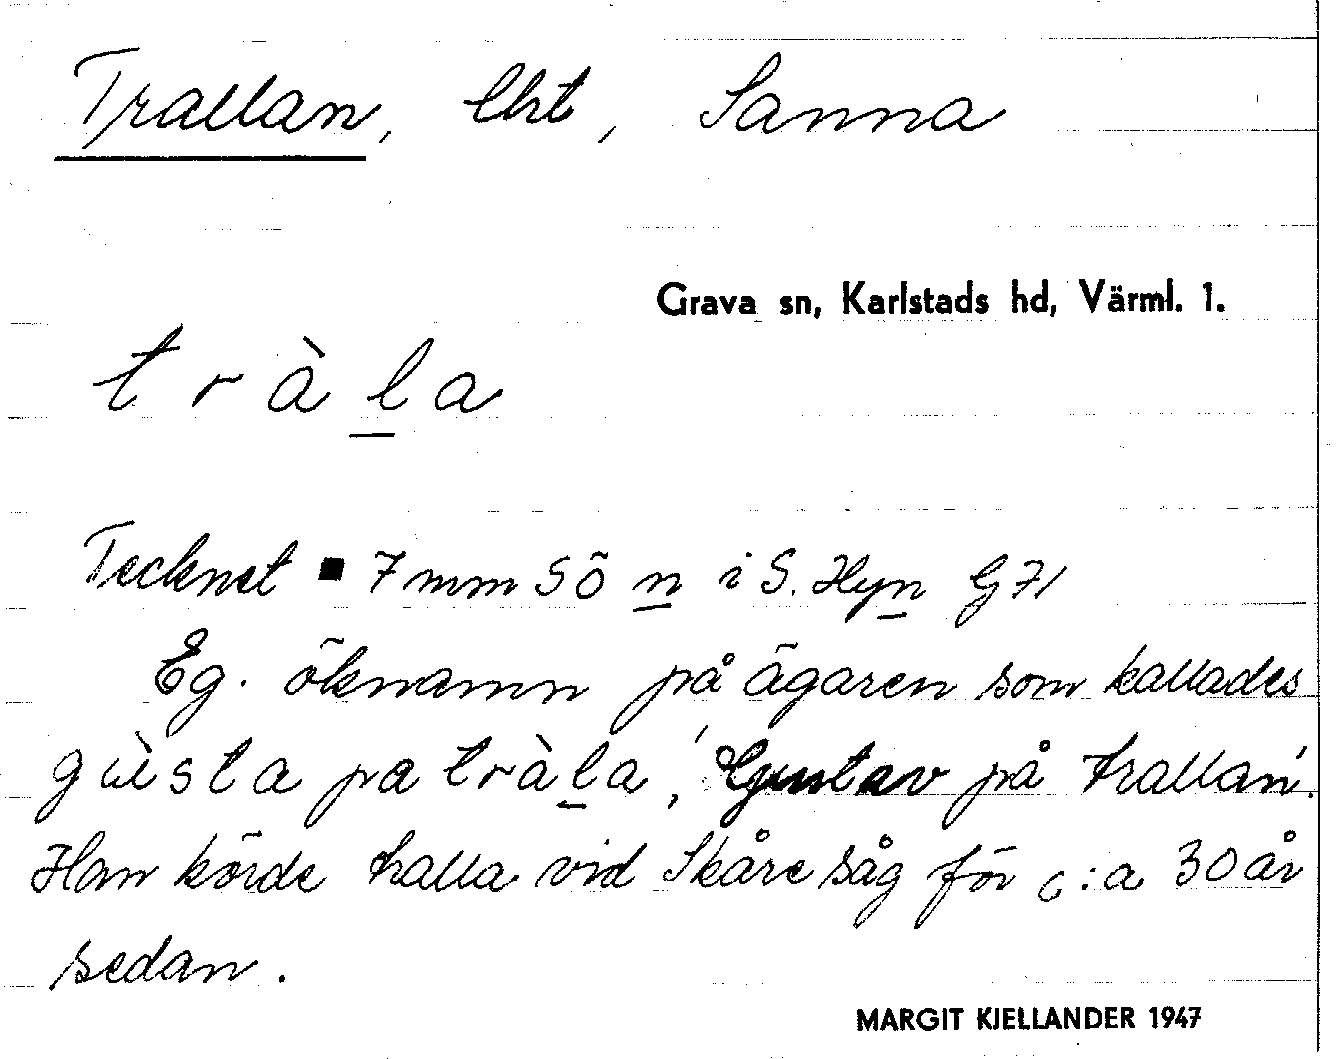 Trallan, lht, Sanna
Grava sn, Karlstads hd, Värml. 1.
tràla
Tecknet ■ 7 mm SÖ n i S. Hyn G 71
Eg. öknamn på ägaren som kallades
gùsta pa tràla, 'Gustav på trallan'.
Han körde tralla vid Skåre såg för c:a 30 år
sedan.
MARGIT KJELLANDER 1947